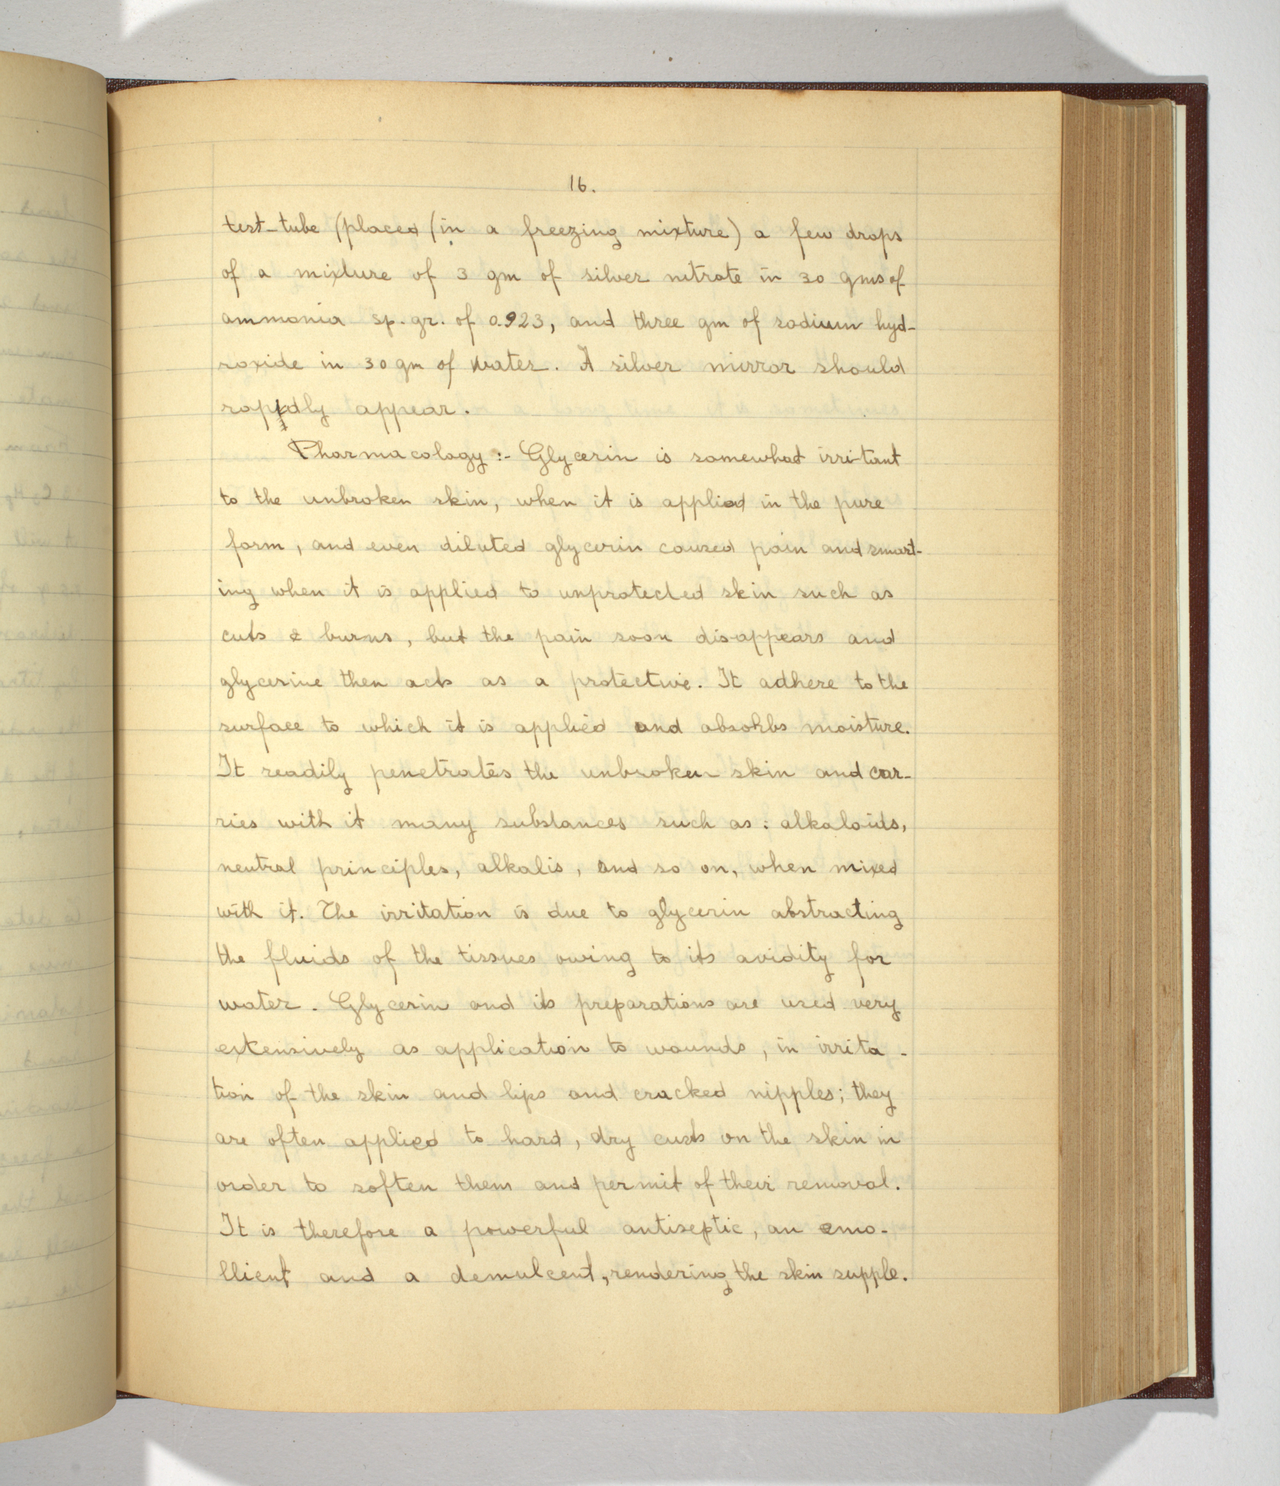 16.
test-tube (placed (in a freezing mixture) a few drops
of a mixture of 3 gm of silver nitrate in 30 gms of
ammonia sp. gr. of 0.923, and three gm of sodium hyd-
roxide in 30 gm of water. A silver mirror should
rapidly appear.
Pharmacology :- Glycerin is somewhat irritant
to the unbroken skin, when it is applied in the pure
form, and even diluted glycerin caused pain and smart-
ing when it is applied to unprotected skin such as
cuts & burns, but the pain soon disappears and
glycerine then acts as a protective. It adhere to the
surface to which it is applied and absorbs moisture.
It readily penetrates the unbroken skin and car-
ries with it many substances such as : alkaloids,
neutral principles, alkalis, and so on, when mixed
with it. The irritation is due to glycerin abstracting
the fluids of the tissues owing to its avidity for
water. Glycerin and its preparations are used very
extensively as application to wounds, in irrita-
tion of the skin and lips and cracked nipples; they
are often applied to hard, dry custs on the skin in
order to soften them and permit of their removal.
It is therefore a powerful antiseptic, an emo-
llient and a demulcent, rendering the skin supple.